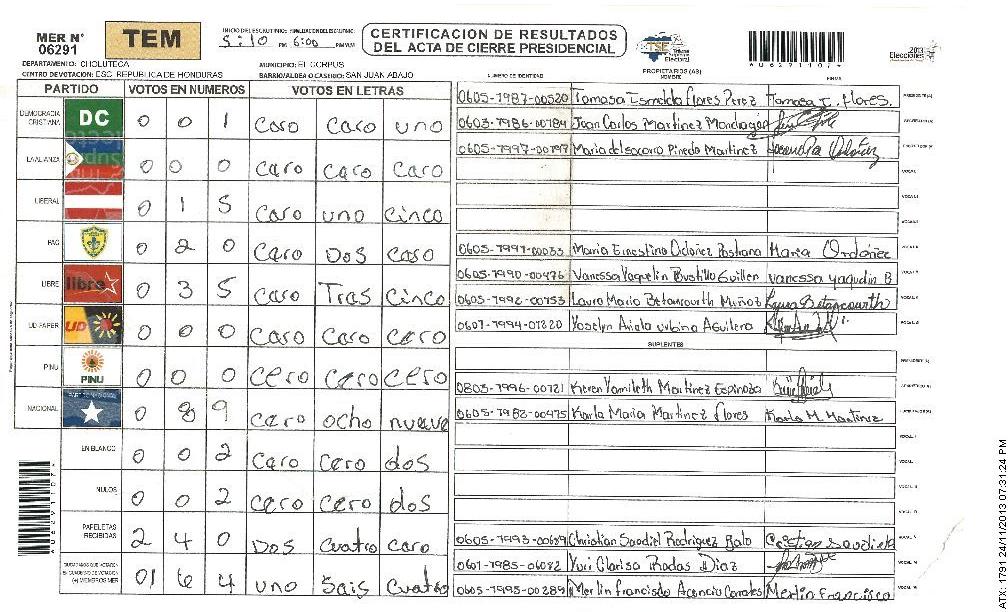 MER N° 06291
TEM
INICIO DEL ESCRUTINIO: FINALIZACION DEL ESCRUTINIO:
5:10 PM 6:00 PM
CERTIFICACION DE RESULTADOS
DEL ACTA DE CIERRE PRESIDENCIAL
TSE Tribunal Supremo Electoral
2013 Elecciones
DEPARTAMENTO: CHOLUTECA
MUNICIPIO: El CORPUS
CENTRO DE VOTACION: ESC. REPUBLICA DE HONDURAS
BARRIO/ALDEA O CASERIO: SAN JUAN ABAJO
NUMERO DE IDENTIDAD PROPIETARIOS (AS) NOMBRE FIRMA
PARTIDO VOTOS EN NUMEROS VOTOS EN LETRAS
DEMOCRACIA CRISTIANA DC 0 0 1 Caro Caro uno
LA ALIANZA 0 0 0 Caro Caro Caro
LIBERAL 0 1 5 Caro uno cinco
PAC 0 2 0 Caro Dos Caro
LIBRE libre 0 3 5 Caro Tras Cinco
UD FAPER UD 0 0 0 Caro Caro Caro
PINU PINU 0 0 0 Cero Cero Cero
NACIONAL 0 8 9 Cero ocho nueve
EN BLANCO 0 0 2 Cero Cero dos
NULOS 0 0 2 Cero Cero dos
PAPELETAS RECIBIDAS 2 4 0 Dos Cuatro Caro
CIUDADANOS QUE VOTARON
(+) MIEMBROS MER 01 6 4 uno Sais Cuatro
0605-1987-00520 Tomasa Ismelda Flores Perez Tomasa I. Flores.
0603-1986-00784 Juan Carlos Martinez Mondragon
0605-1997-00797 Maria del socorro Pinedo Martinez
0605-1991-00033 Maria Ernestina Ordoñez Pastrana Maria Ordóñez
0605-1990-00476 Vanessa Yaquelin Bustillo Guillen vanessa yaqudin B
0605-1992-00753 Laura Maria Betancourth Muñoz Laura Betancourth
0607-1994-01220 Yoselyn Ariela urbina Aguilera
SUPLENTES
0803-1996-00721 Keren Yamileth Martinez Espinoza
0605-1982-00475 Karla Maria Martinez flores Karla M. Martinez
0605-1993-00689 Christian Saudiel Rodriguez
0601-1985-01082 Yuri Clarisa Rodas Diaz
0605-1995-00289 Merlin francisco Merlin francisco
AU6291107+
STX: 1791 24/11/2013 07:31:24 PM